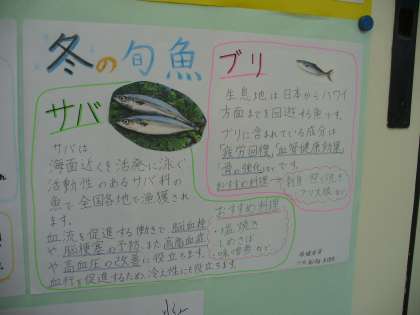 冬の旬魚
サバ
サバは
海面近くを活発に泳ぐ
活動性のあるサバ科の
魚で、全国各地で漁獲され
ます。
血流を促進する働きで、脳血栓
や脳梗塞の予防、また高脂血症
や高血圧の改善に役立ちます。
血行を促進するため、冷え性にも役立ちます。
おすすめ料理
・塩焼き
・しめさば
・味噌煮など
ブリ
生息地は日本からハワイ
方面までを回遊する魚です。
ブリに含まれている成分は
「疲労回復」「血管健康効果」
「骨の強化」などです。
おすすめ料理→刺身、照り焼き